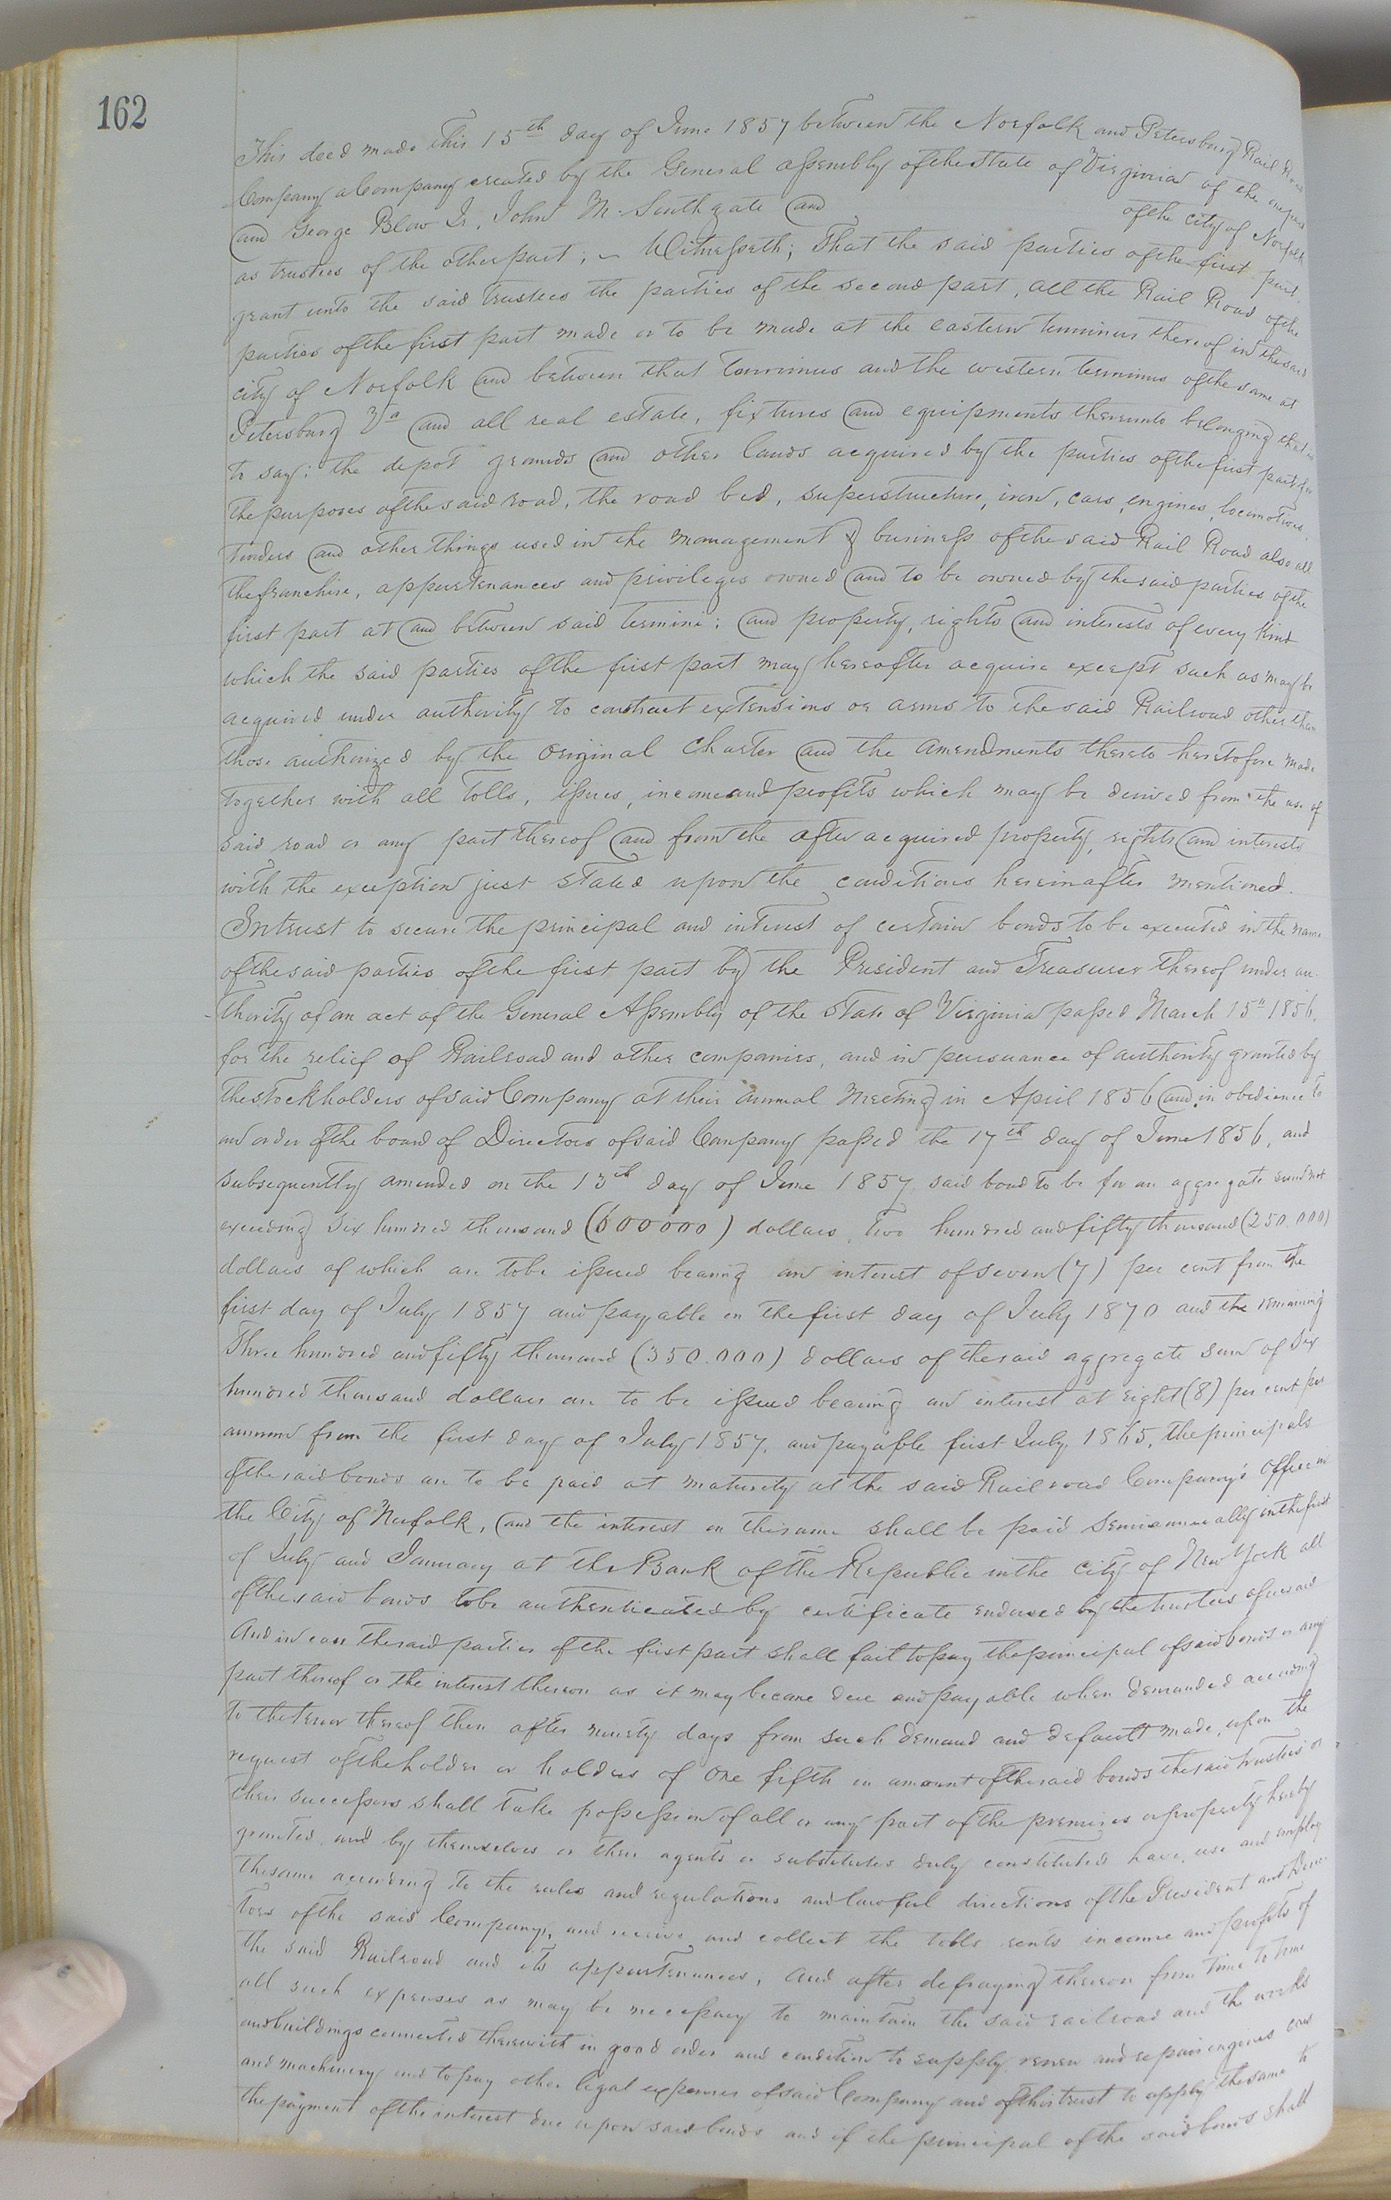 162
This deed made this 15th day of June 1857 between the Norfolk and Petersburg Rail Road
Company a Company created by the General assembly of the State of Virginia of the one part
and George Blow Jr. John M. Southgate and of the city of Norfolk
as trustees of the other part; Witnesseth; That the said parties of the first part,
grant unto the said trustees the parties of the second part, all the Rail Road of the
parties of the first part made or to be made at the eastern terminus thereof in the said
city of Norfolk and between that Terminus and the western terminus of the same at
Petersburg Va and all real estate, fixtures and equipments thereunto belonging that is
to say: the depot grounds and other lands acquired by the parties of the first part for
the purposes of the said road, the road bed, superstructure, iron, cars, engines, locomotives,
tenders and other things used in the management & business of the said Rail Road also all
the franchise, appurtenances and privileges owned and to be owned by the said parties of the
first part at and between said termini; and property, rights and interests of every kind
which the said parties of the first part may hereafter acquire except such as may be
acquired under authority to construct extensions or arms to the said Railroad other than
those authorized by the original Charter and the amendments thereto heretofore made
together with all tolls, issues, income and profits which may be derived from the use of
said road or any part thereof and from the after acquired property, rights and interests
with the exception just stated upon the conditions hereinafter mentioned.
In trust to secure the principal and interest of certain bonds to be executed in the name
of the said parties of the first part by the President and Treasurer thereof under au
-thority of an act of the General Assembly of the State of Virginia passed March 15" 1856.
for the relief of Railroad and other companies, and in pursuance of authority granted by
the stockholders of said Company at their annual Meeting in April 1856 and in obedience to
an order of the board of Directors of said Company passed the 17th day of June 1856, and
subsequently amended on the 13th day of June 1857, said bond to be for an aggregate sum not
exceeding six hundred thousand (600000) dollars, two hundred and fifty thousand (250.000)
dollars of which are to be issued bearing an interest of seven (7) per cent from the
first day of July 1857 and payable on the first day of July 1870 and the remaining
Three hundred and fifty thousand (350.000) dollars of the said aggregate sum of six
hundred thousand dollars are to be issued bearing an interest at eight (8) per cent per
annum from the first day of July 1857. and payable first July 1865, the principals
of the said bonds are to be paid at maturity at the said Railroad Company's office in
the City of Norfolk, and the interest on the same shall be paid semiannually in the first
of July and January at the Bank of the Republic in the city of New York all
of the said bonds to be authenticated by certificate endorsed by the trustees aforesaid
And in case the said parties of the first part shall fail to pay the principal of said bonds or any
part thereof or the interest thereon as it may become due and payable when demanded according
to the tenor thereof then after ninety days from such demand and default made, upon the
request of the holder or holders of one fifth in amount of the said bonds the said trustees or
their successors shall take possession of all or any part of the premises or property hereby
granted, and by themselves or their agents or substitutes duly constituted have, use and employ
the same according to the rules and regulations and lawful directions of the President and Direc
tors of the said Company, and receive and collect the tolls rents income and profits of
the said Railroad and its appurtenances, and after defraying thereon from time to time
all such expenses as may be necessary to maintain the said railroad and the works
and buildings connected therewith in good order and condition to supply, renew and repair engines cars
and machinery and to pay other legal expenses of said Company and of this trust to apply the same to
the payment of the interest due upon said bonds and if the principal of the said bonds shall